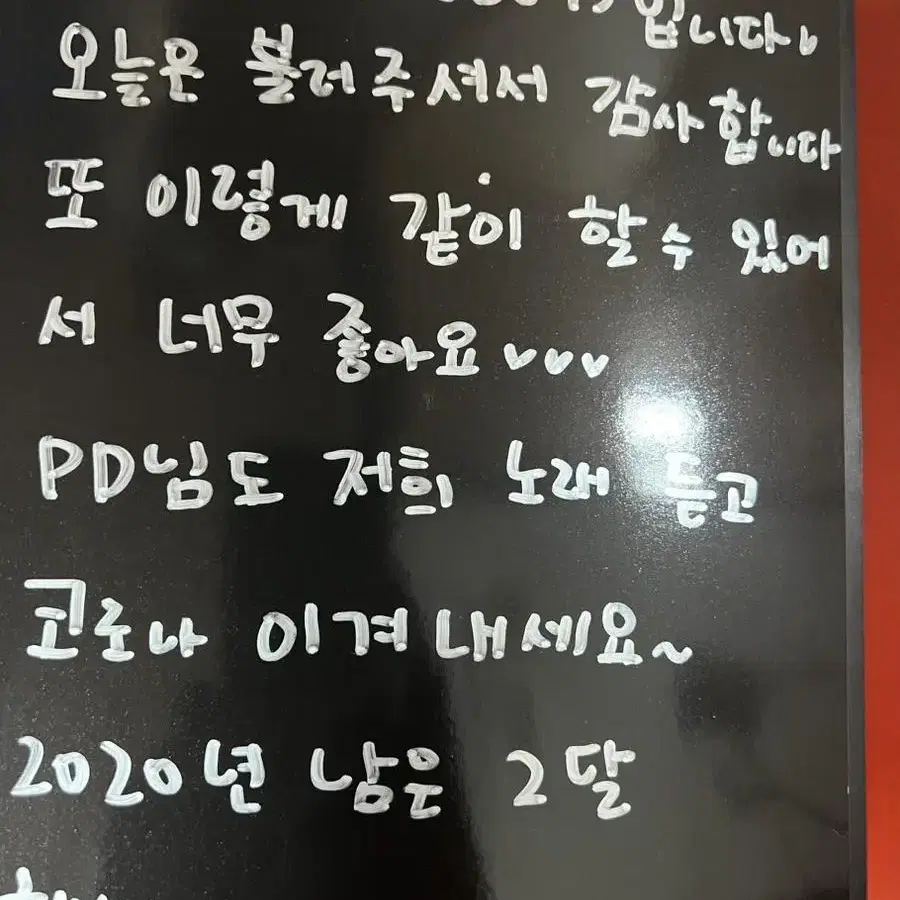 입니다♡
오늘은 불러주셔서 감사합니다
또 이렇게 같이 할 수 있어
서 너무 좋아요♡♡♡
PD님도 저희 노래 듣고
코로나 이겨내세요~
2020년 남은 2달